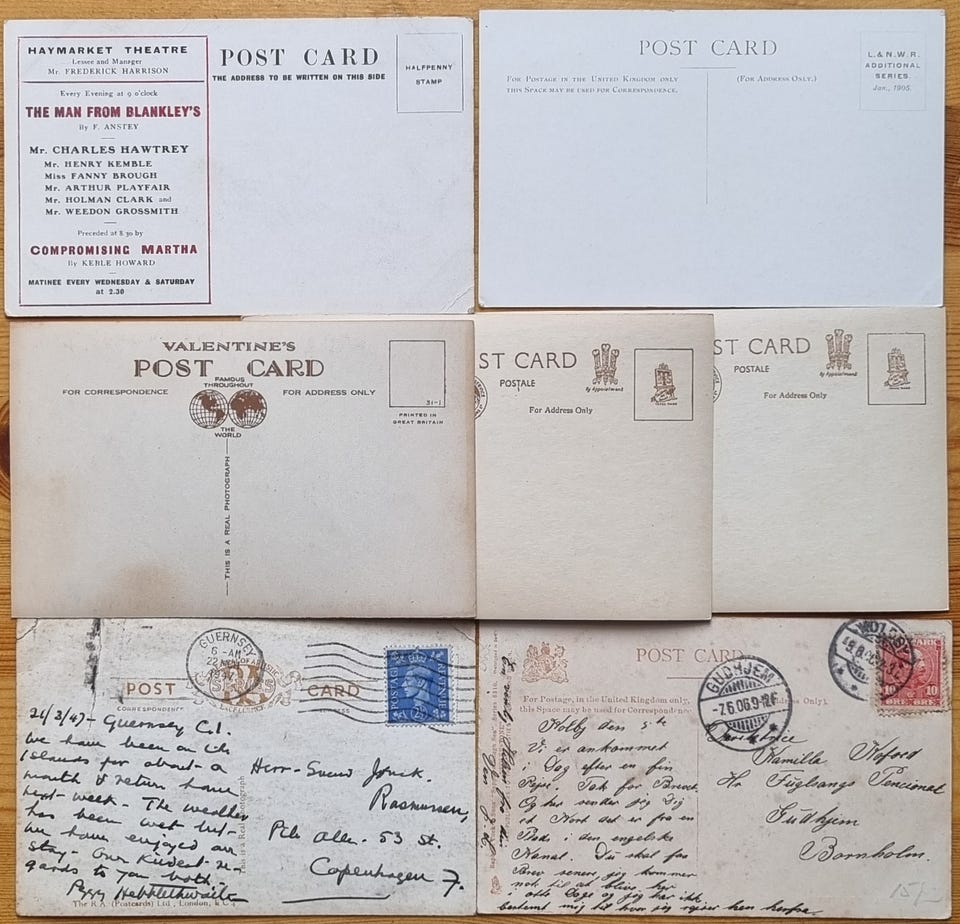 HAYMARKET THEATRE
Lessee and Manager
Mr. FREDERICK HARRISON
Every Evening at 9 o'clock
THE MAN FROM BLANKLEY'S
By F. ANSTEY
Mr. CHARLES HAWTREY
Mr. HENRY KEMBLE
Miss FANNY BROUGH
Mr. ARTHUR PLAYFAIR
Mr. HOLMAN CLARK and
Mr. WEEDON GROSSMITH
Preceded at 8.30 by
COMPROMISING MARTHA
By KEBLE HOWARD
MATINEE EVERY WEDNESDAY & SATURDAY
at 2.30
POST CARD
THE ADDRESS TO BE WRITTEN ON THIS SIDE
HALFPENNY
STAMP
POST CARD
FOR POSTAGE IN THE UNITED KINGDOM ONLY
THIS SPACE MAY BE USED FOR CORRESPONDENCE.
(FOR ADDRESS ONLY.)
L. & N. W. R.
ADDITIONAL
SERIES.
Jan., 1905.
VALENTINE'S
POST CARD
FAMOUS
THROUGHOUT
THE
WORLD
FOR CORRESPONDENCE
FOR ADDRESS ONLY
THIS IS A REAL PHOTOGRAPH
31-1
PRINTED IN
GREAT BRITAIN
ST CARD
POSTALE
By Appointment
For Address Only
ST CARD
POSTALE
By Appointment
For Address Only
GUERNSEY
6 - AM
22
1947
POST CARD
CORRESPONDENCE
POSTAGE REVENUE
2½
21/3/47 - Guernsey C.I.
We have been on Ch
Islands for about a
month & return home
next week - The weather
has been wet but
we have enjoyed our
stay - Our kindest re-
gards to you both.
Peggy Hebblethwaite
This is a Real Photograph
Herr
Rasmussen,
Pile Alle. 53 St.
Copenhagen F.
The R.A. (Postcards) Ltd., London, E.C.4
POST CARD
For Postage, in the United Kingdom only,
this Space may be used for Correspondence.
GUDHJEM
-7.6.06.9-12F
10 10
ØRE
den 5te
Vi er ankommet
i Dag efter en fin
Rejse. Tak for Brevet.
Og her sender jeg Dig
et Kort det er fra en
i den engelske
Kanal. Du skal faa
Brev senere jeg kommer
til at blive her
Dage og jeg har ikke
bestemt mig til hvor jeg rejser hen herfra.
Kamilla Koford
Hr Fuglsangs Pencionat
Gudhjem
Bornholm.
15/-